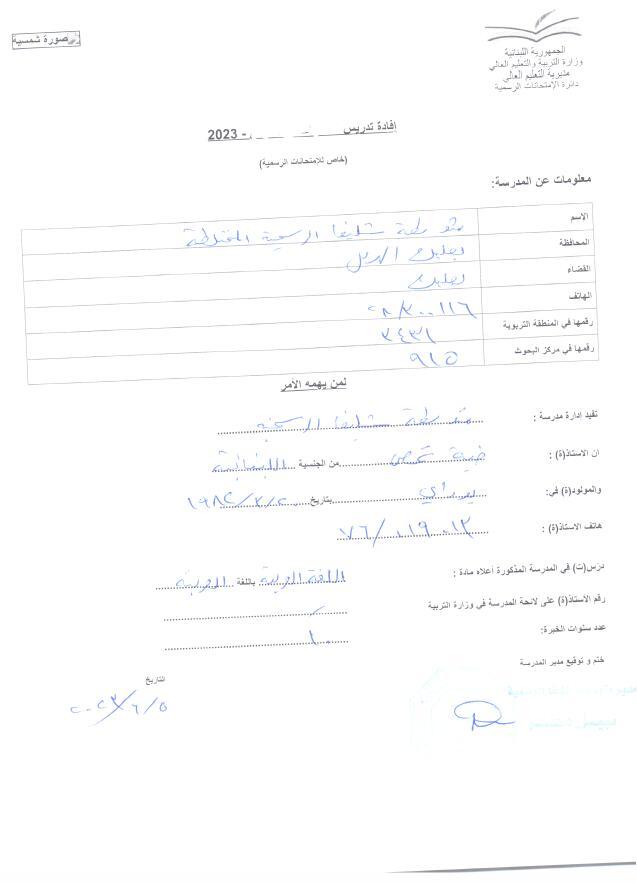 صورة شمسية
الجمهورية اللبنانية
وزارة التربية والتعليم العالي
مديرية التعليم العالي
دائرة الإمتحانات الرسمية
إفادة تدريس - 2023
(خاص للإمتحانات الرسمية)
معلومات عن المدرسة:
الاسم متوسطة شليفا الرسمية المختلطة
المحافظة بعلبك الهرمل
القضاء بعلبك
الهاتف ٠٨/٢٠٠١١٦
رقمها في المنطقة التربوية ٢٤٣١
رقمها في مركز البحوث ٩١٥
لمن يهمه الأمر
تفيد إدارة مدرسة : متوسطة شليفا الرسمية
ان الاستاذ(ة) : من الجنسية اللبنانية
والمولود(ة) في: بتاريخ ١٩٨٢/٢/٢٠
هاتف الاستاذ(ة) : ٧٦/٠١٩٠١٢
درّس(ت) في المدرسة المذكورة أعلاه مادة : اللغة العربية باللغة العربية
رقم الاستاذ(ة) على لائحة المدرسة في وزارة التربية
عدد سنوات الخبرة: ١٠
ختم و توقيع مدير المدرسة
التاريخ
٢٠٢٣/٦/٥